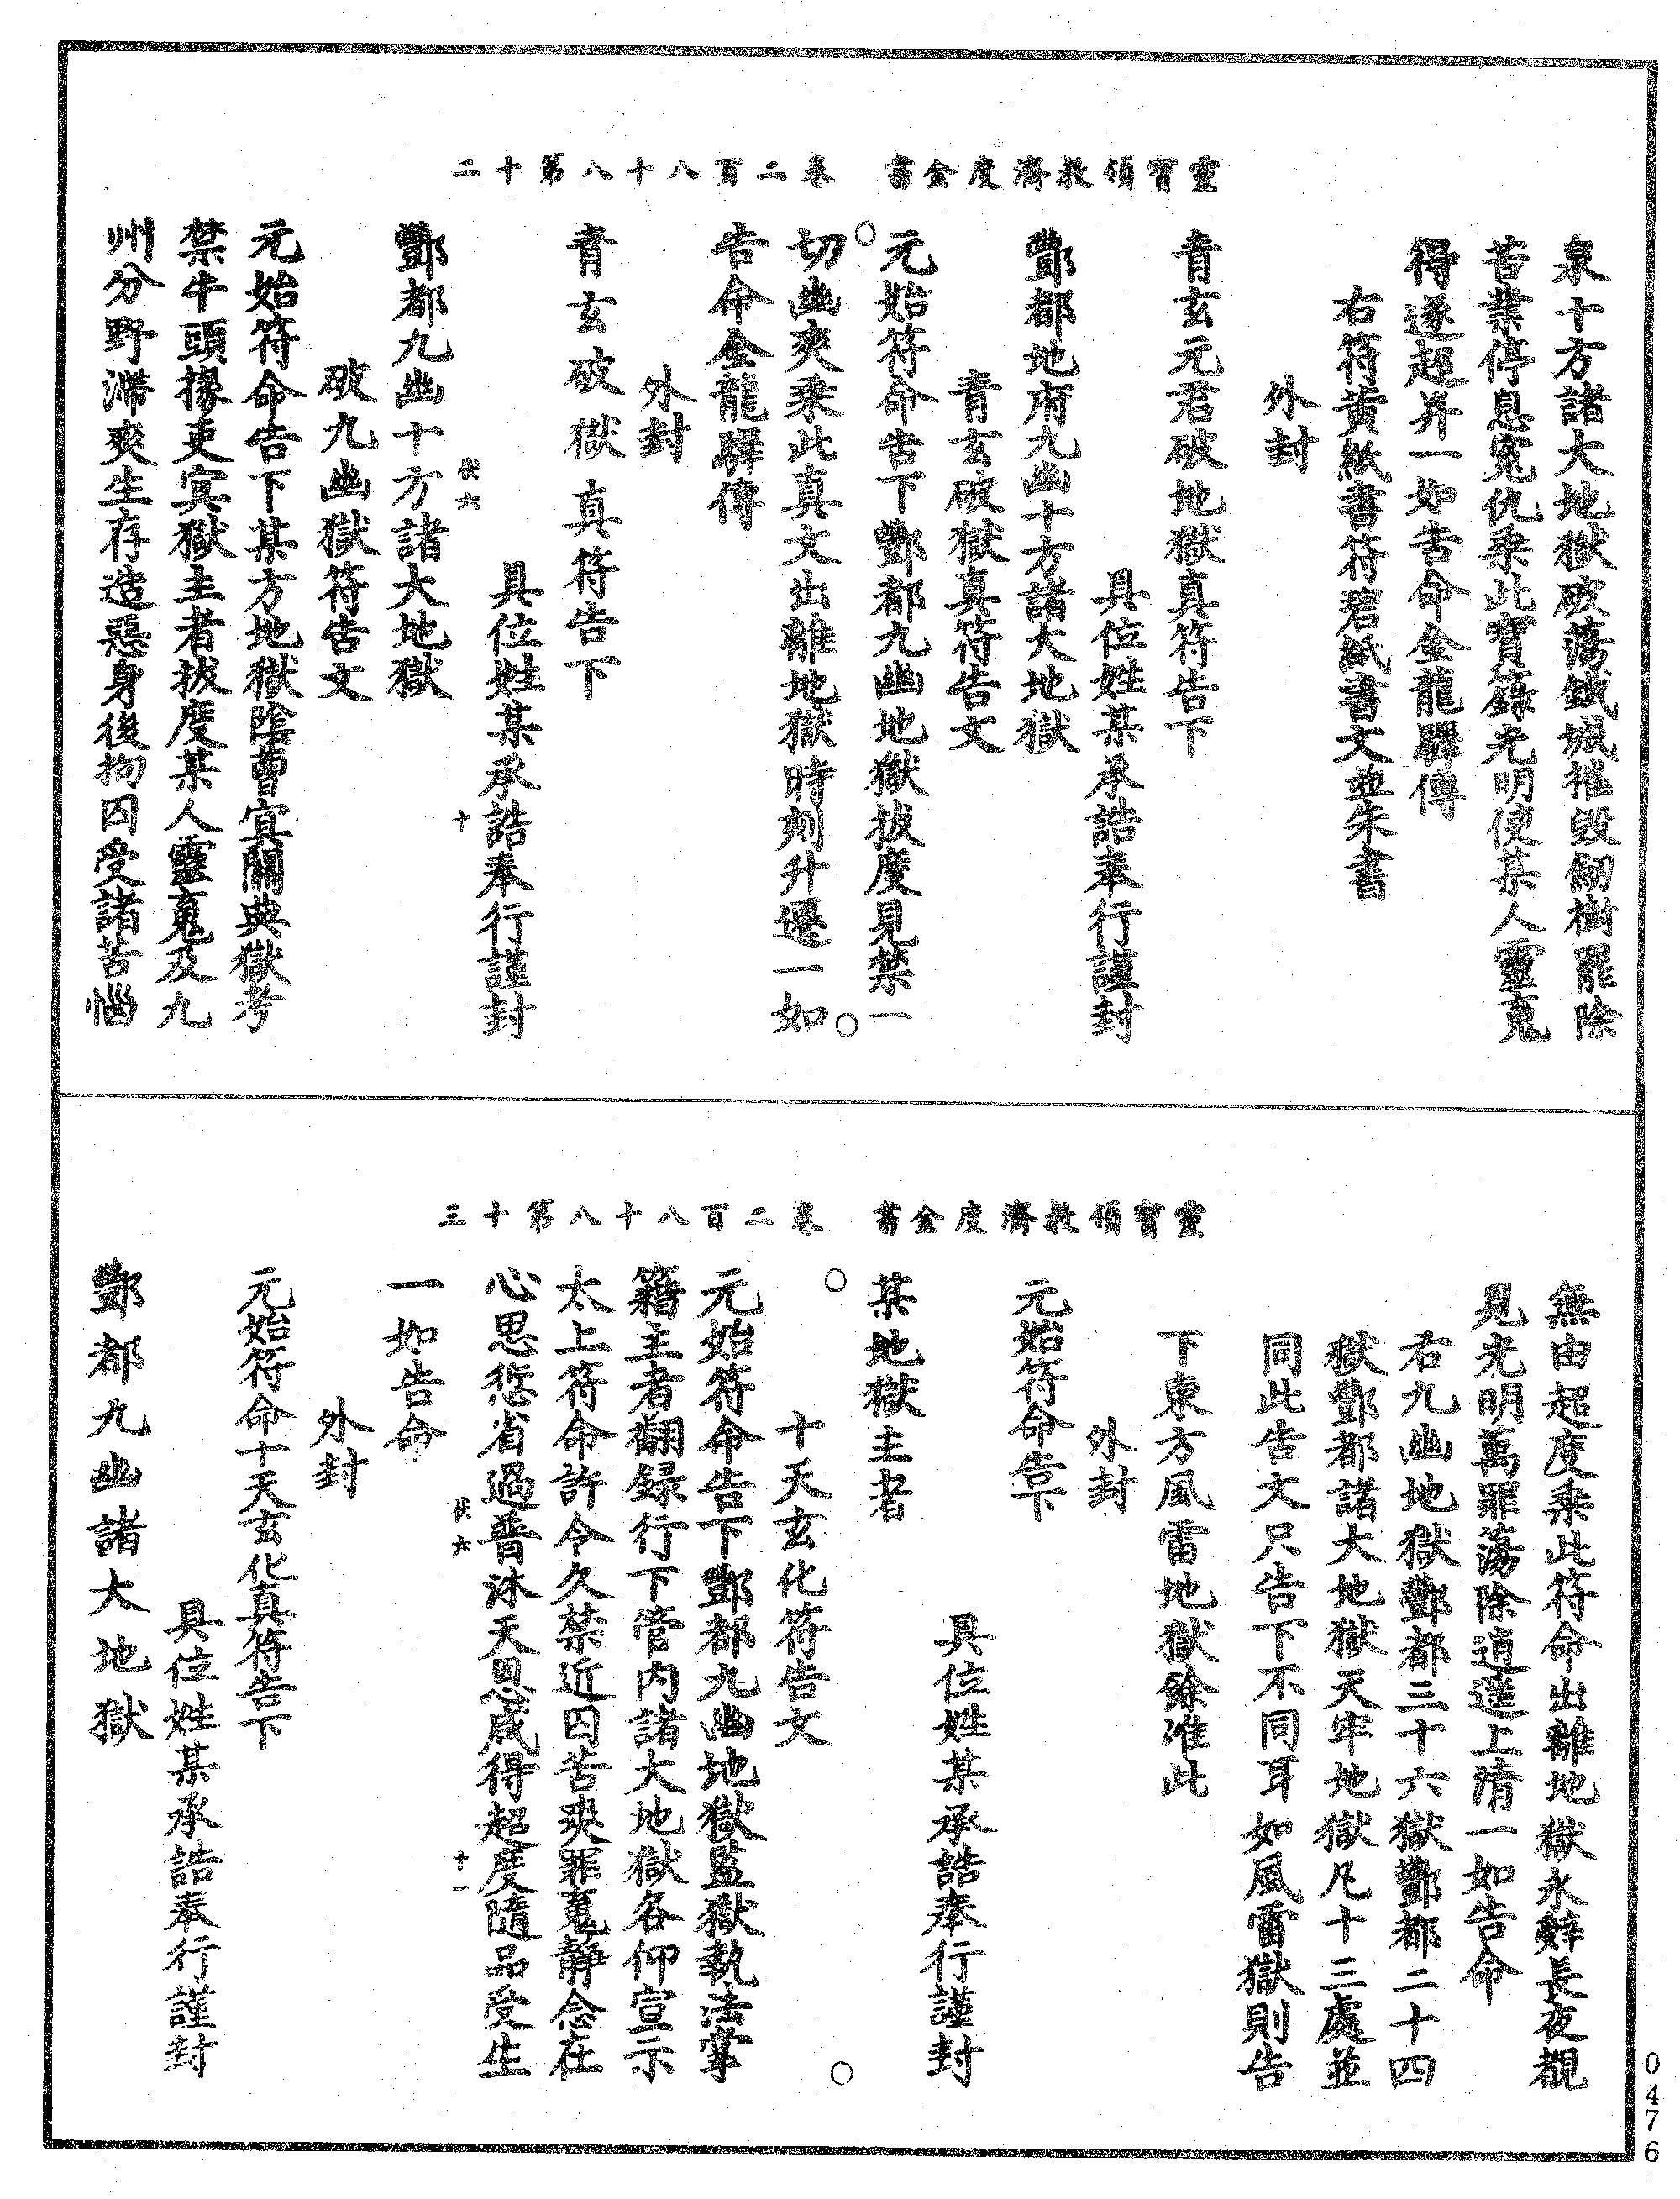 靈寶領教濟度金書　卷二百八十八第十二
泉十方諸大地獄破蕩鐵城摧毀劒樹罷除
苦業停息寃仇乘此寶籙光明使某人靈䰟
得遂超昇一如告命金龍驛傳
右符黃紙書符碧紙書文並朱書
外封
青玄元君破地獄真符告下
具位姓某承誥奉行謹封
酆都地府九幽十方諸大地獄
青玄破獄真符告文
元始符命告下酆都九幽地獄拔度見禁一
切幽爽乘此真文出離地獄時刻升遷一如
告命金龍驛傳
外封
青玄破獄真符告下
具位姓某承誥奉行謹封
六
十
酆都九幽十方諸大地獄
破九幽獄符告文
元始符命告下某方地獄陰曹冥關典獄考
禁牛頭掾吏冥獄主者拔度某人靈䰟及九
州分野滯爽生存造惡身後拘囚受諸苦惱
靈寶領教濟度金書　卷二百八十八第十三
無由超度乘此符命出離地獄永辭長夜覩
見光明萬罪蕩除逍遥上清一如告命
右九幽地獄酆都三十六獄酆都二十四
獄酆都諸大地獄天牢地獄凡十三處並
同此告文只告下不同耳如風雷獄則告
下東方風雷地獄餘准此
外封
元始符命告下
具位姓某承誥奉行謹封
某地獄主者
十天玄化符告文
元始符命告下酆都九幽地獄監獄執法掌
籍主者翻録行下管内諸大地獄各仰宣示
太上符命許令久禁近囚苦爽罪䰟静念在
心思愆省過普沐天恩咸得超度隨品受生
六
十一
一如告命
外封
元始符命十天玄化真符告下
具位姓某承誥奉行謹封
酆都九幽諸大地獄
0476